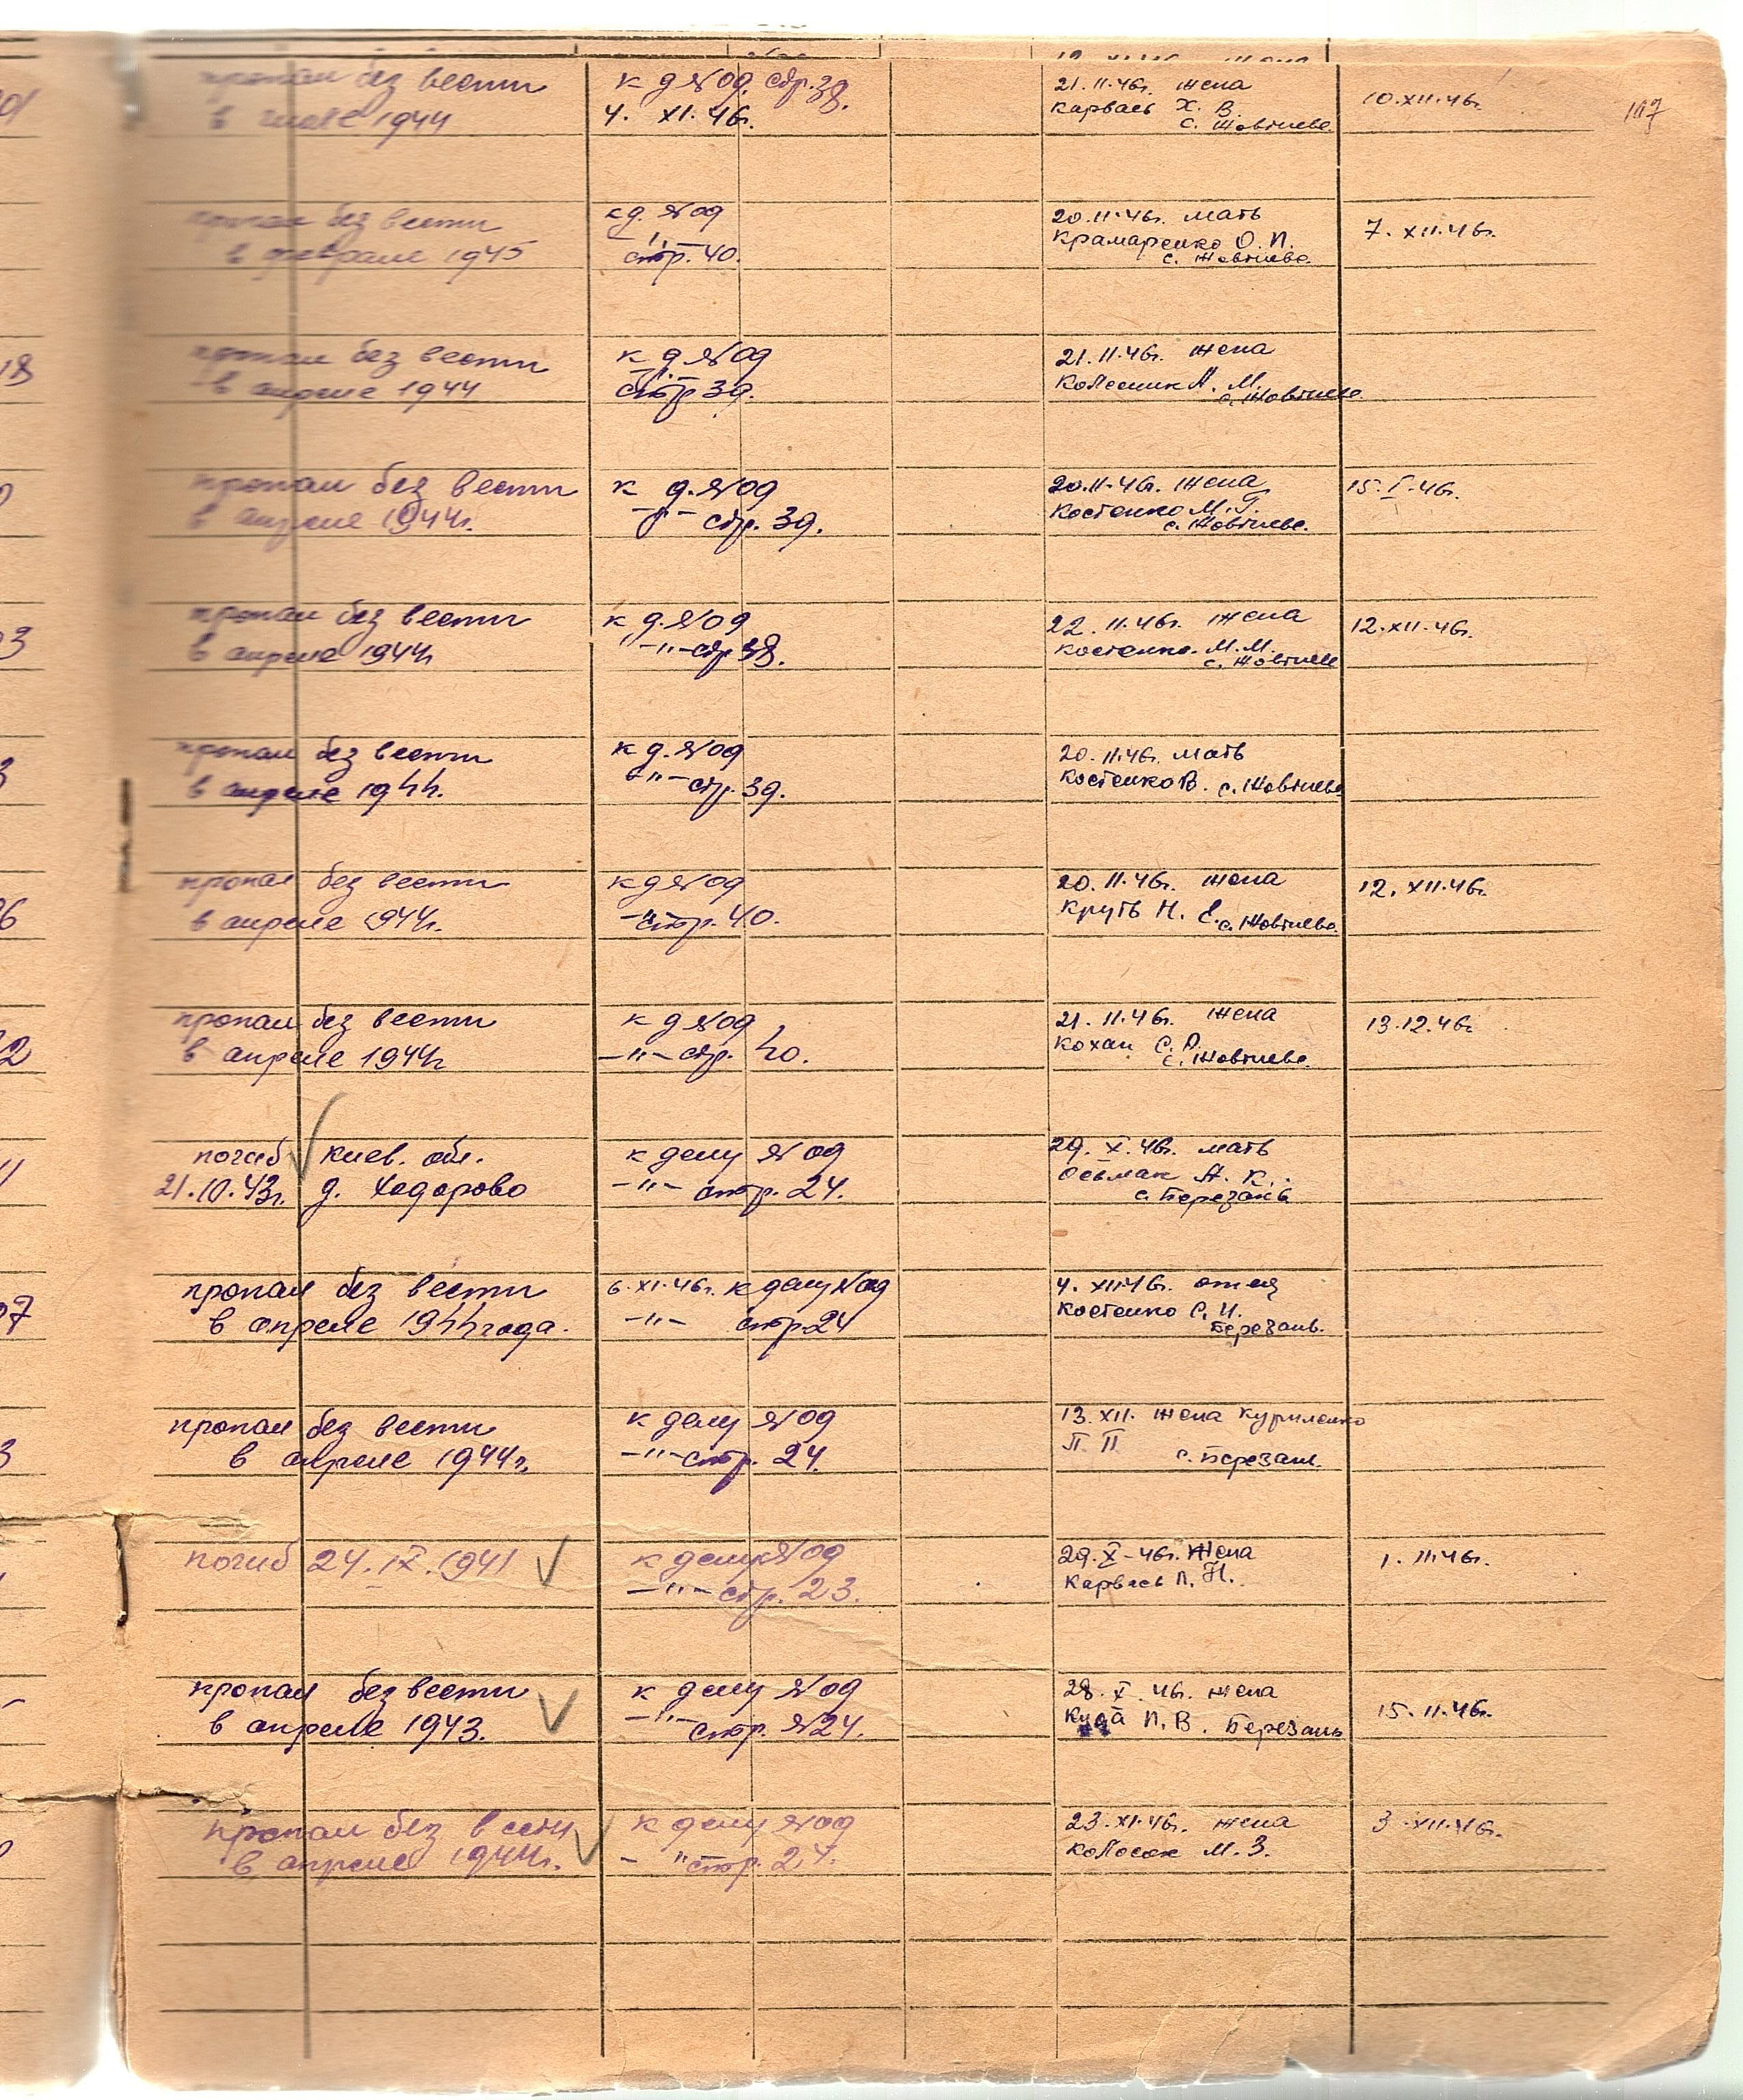 пропал без вести к д. №09. стр. 38. 21.11.46г. жена 10.XII.46г. 117
в 1944 4. XI.46г. Карвась Х. В.
с. Жовтнево
пропал без вести к д. №09 20.11.46г. мать 7. XII.46г.
в феврале 1945 –"– Крамаренко О. П.
стр. 40. с. Жовтнево.
18 пропал без вести к д. №09 21.11.46г. жена
в апреле 1944 –"– Колесник А. М.
стр 39. с. Жовтнево
пропал без вести к д. №09 20.11.46г. жена 15.I.46г.
в апреле 1944г. –"– стр. 39. Костенко М. Г.
с. Жовтнево.
3 пропал без вести к д. №09 22.11.46г. жена 12.XII.46г.
в апреле 1944г –"– стр 38. Костенко М. М.
с. Жовтнево
3 пропал без вести к д. №09 20.11.46г. мать
в апреле 1944. –"– стр. 39. Костенко В. с. Жовтнево
6 пропал без вести к д №09 20.11.46г. жена 12.XII.46г.
в апреле 1944г. –"– стр. 40. Круть Н. Е. с. Жовтнево.
2 пропал без вести к д №09 21.11.46г. жена 13.12.46г
в апреле 1944г –"– стр. 40. Кохан С. А.
с. Жовтнево.
погиб Киев. обл. к делу №09 29.X.46г. мать
21.10.43г. д. Ходорово –"– стр. 24. Осьмак А. К.
с. Березань
7 пропал без вести 6.XI.46г. к делу №09 4. XII.46г. отец
в апреле 1944 года. –"– стр. 24 Костенко С. И.
Березань.
3 пропал без вести к делу №09 13.XII. жена Куриленко
в апреле 1944г. –"– стр. 24. П. П.
с. Березань.
погиб 24.IX.1941 к делу №09 29.X-46г. жена 1. 11.46г.
–"– стр. 23. Карвась П. Н.
пропал без вести к делу №09 28.X.46г. жена 15.11.46г.
в апреле 1943. –"– стр. №24. П. В. Березань
пропал без вести к делу №09 23.XI.46г. жена 3.XII.46г.
в апреле 1944г. – " стр. 24. Колосок М. З.